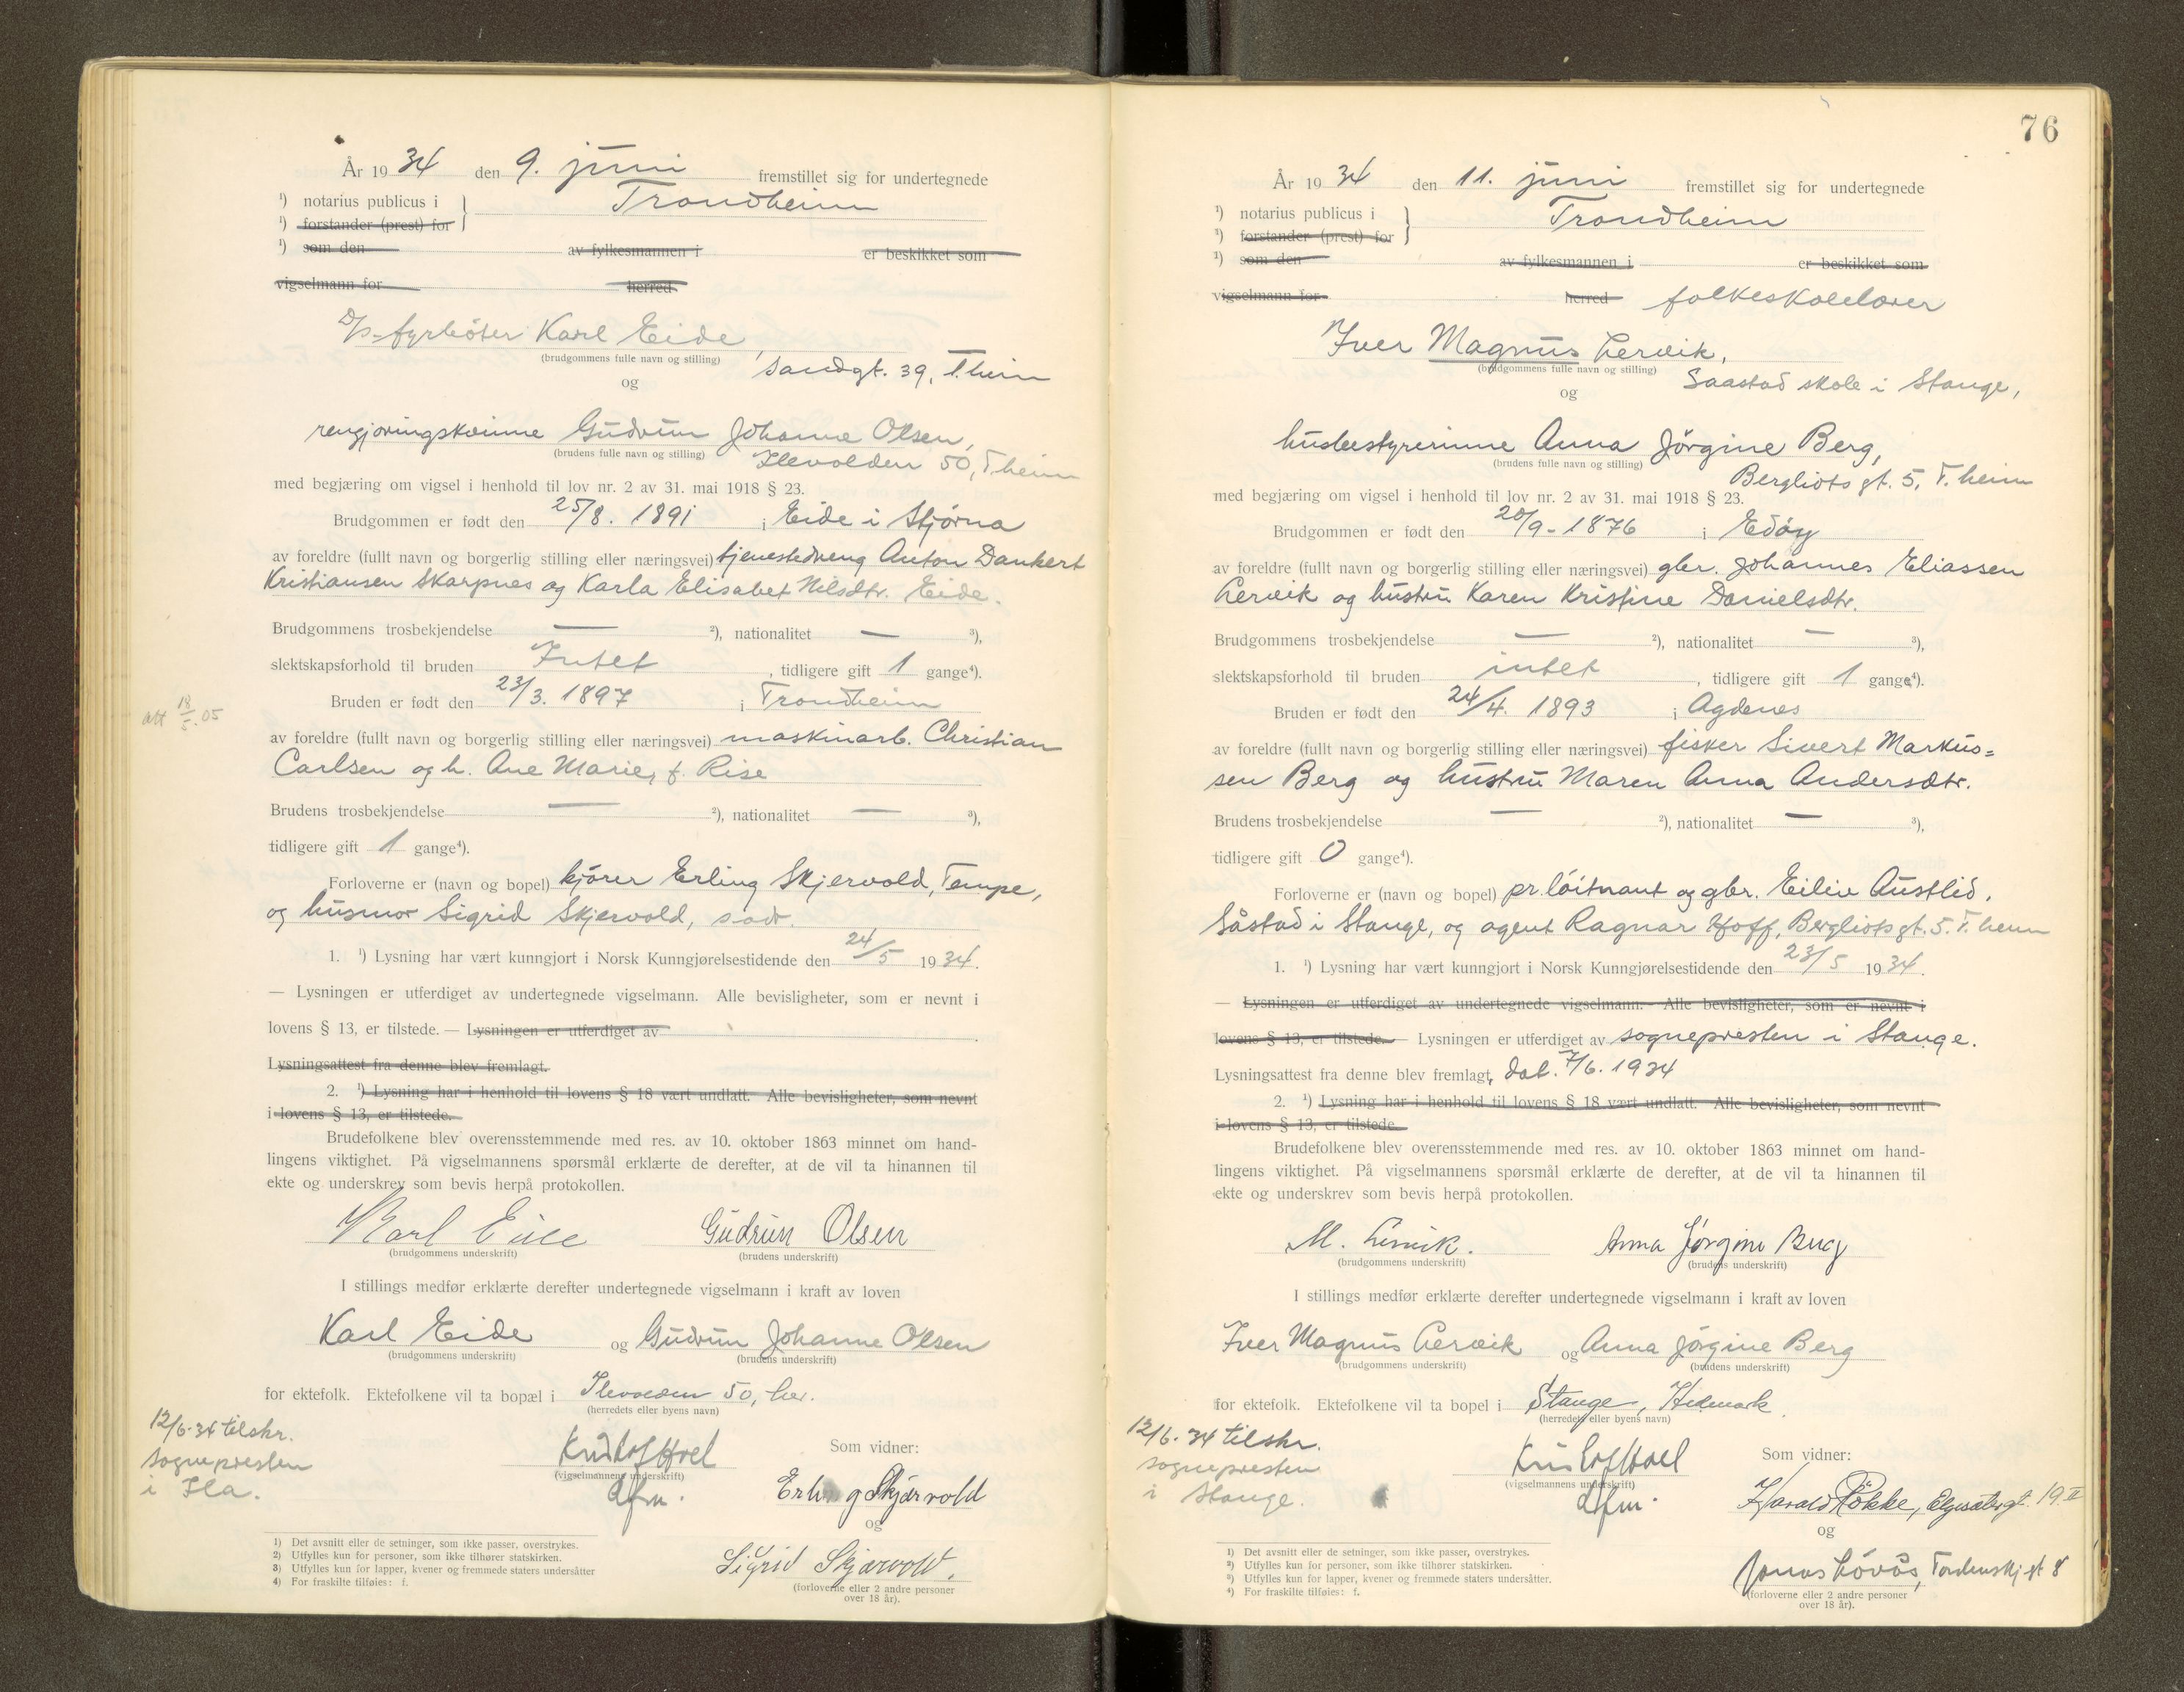 År 1934 den 9. juni fremstillet sig for undertegnede
¹) notarius publicus i
Trondheim
¹) forstander (prest) for
¹) som den av fylkesmannen i er beskikket som
vigselmann for herred
D/s-fyrbøter Karl Eide,
(brudgommens fulle navn og stilling)
Sandgt. 39, T.heim
og
rengjøringskvinne Gudrun Johanne Olsen,
(brudens fulle navn og stilling)
Ilevolden 50, T.heim
med begjæring om vigsel i henhold til lov nr. 2 av 31. mai 1918 § 23.
Brudgommen er født den 25/8. 1891 i Eide i Stjørna
av foreldre (fullt navn og borgerlig stilling eller næringsvei) tjenestedreng Anton Dankert
Kristiansen Skarpnes og Karla Elisabet Nilsdtr. Eide.
Brudgommens trosbekjendelse — ²), nationalitet — ³),
slektskapsforhold til bruden Intet, tidligere gift 1 gange⁴).
Bruden er født den 23/3. 1897 i Trondheim
att 18/5. 05
av foreldre (fullt navn og borgerlig stilling eller næringsvei) maskinarb. Christian
Carlsen og h. Ane Marie, f. Rise
Brudens trosbekjendelse — ²), nationalitet — ³),
tidligere gift 1 gange⁴).
Forloverne er (navn og bopel) kjører Erling Skjervold, Tempe,
og husmor Sigrid Skjervold, s.adr.
1. ¹) Lysning har vært kunngjort i Norsk Kunngjørelsestidende den 24/5 1934.
— Lysningen er utferdiget av undertegnede vigselmann. Alle bevisligheter, som er nevnt i
lovens § 13, er tilstede. — Lysningen er utferdiget av
Lysningsattest fra denne blev fremlagt.
2. ¹) Lysning har i henhold til lovens § 18 vært undlatt. Alle bevisligheter, som nevnt
i lovens § 13, er tilstede.
Brudefolkene blev overensstemmende med res. av 10. oktober 1863 minnet om hand-
lingens viktighet. På vigselmannens spørsmål erklærte de derefter, at de vil ta hinannen til
ekte og underskrev som bevis herpå protokollen.
Karl Eide Gudrun Olsen
(brudgommens underskrift) (brudens underskrift)
I stillings medfør erklærte derefter undertegnede vigselmann i kraft av loven
Karl Eide og Gudrun Johanne Olsen
(brudgommens underskrift) (brudens underskrift)
for ektefolk. Ektefolkene vil ta bopæl i Ilevolden 50, her.
(herredets eller byens navn)
12/6. 34 tilskr.
sognepresten
i Ila.
Kristof Hoel
(vigselmannens underskrift)
dfm.
Som vidner:
Erling Skjærvold
og
Sigrid Skjærvold.
(forloverne eller 2 andre personer
over 18 år).
1) Det avsnitt eller de setninger, som ikke passer, overstrykes.
2) Utfylles kun for personer, som ikke tilhører statskirken.
3) Utfylles kun for lapper, kvener og fremmede staters undersåtter
4) For fraskilte tilføies: f.
76
År 1934 den 11. juni fremstillet sig for undertegnede
¹) notarius publicus i
Trondheim
¹) forstander (prest) for
¹) som den av fylkesmannen i er beskikket som
vigselmann for herred folkeskolelærer
Iver Magnus Lervik,
(brudgommens fulle navn og stilling)
Saastad skole i Stange,
og
husbestyrerinne Anna Jørgine Berg,
(brudens fulle navn og stilling)
Bergliots gt. 5, T.heim
med begjæring om vigsel i henhold til lov nr. 2 av 31. mai 1918 § 23.
Brudgommen er født den 20/9 - 1876 i Edøy
av foreldre (fullt navn og borgerlig stilling eller næringsvei) gbr. Johannes Eliassen
Lervik og hustru Karen Kristine Danielsdtr.
Brudgommens trosbekjendelse — ²), nationalitet — ³),
slektskapsforhold til bruden intet, tidligere gift 1 gange⁴).
Bruden er født den 24/4. 1893 i Agdenes
av foreldre (fullt navn og borgerlig stilling eller næringsvei) fisker Sivert Markus=
sen Berg og hustru Maren Anna Andersdtr.
Brudens trosbekjendelse — ²), nationalitet — ³),
tidligere gift 0 gange⁴).
Forloverne er (navn og bopel) pr.løitnant og gbr. Eiliv Austlid,
Såstad i Stange, og agent Ragnar Hoff, Bergliots gt. 5. T.heim
1. ¹) Lysning har vært kunngjort i Norsk Kunngjørelsestidende den 23/5 1934.
— Lysningen er utferdiget av undertegnede vigselmann. Alle bevisligheter, som er nevnt i
lovens § 13, er tilstede. — Lysningen er utferdiget av sognepresten i Stange.
Lysningsattest fra denne blev fremlagt, dat. 7/6. 1934
2. ¹) Lysning har i henhold til lovens § 18 vært undlatt. Alle bevisligheter, som nevnt
i lovens § 13, er tilstede.
Brudefolkene blev overensstemmende med res. av 10. oktober 1863 minnet om hand-
lingens viktighet. På vigselmannens spørsmål erklærte de derefter, at de vil ta hinannen til
ekte og underskrev som bevis herpå protokollen.
M. Lervik. Anna Jørgine Berg
(brudgommens underskrift) (brudens underskrift)
I stillings medfør erklærte derefter undertegnede vigselmann i kraft av loven
Iver Magnus Lervik og Anna Jørgine Berg
(brudgommens underskrift) (brudens underskrift)
for ektefolk. Ektefolkene vil ta bopel i Stange, Hedmark.
(herredets eller byens navn)
12/6. 34 tilskr.
sognepresten
i Stange.
Kristof Hoel
(vigselmannens underskrift)
dfm.
Som vidner:
Harald Røkke, Elgesætergt. 19 II
og
Jonas Løvås, Tordenskj gt 8
(forloverne eller 2 andre personer
over 18 år).
¹) Det avsnitt eller de setninger, som ikke passer, overstrykes.
²) Utfylles kun for personer, som ikke tilhører statskirken.
³) Utfylles kun for lapper, kvener og fremmede staters undersåtter.
⁴) For fraskilte tilføies: f.